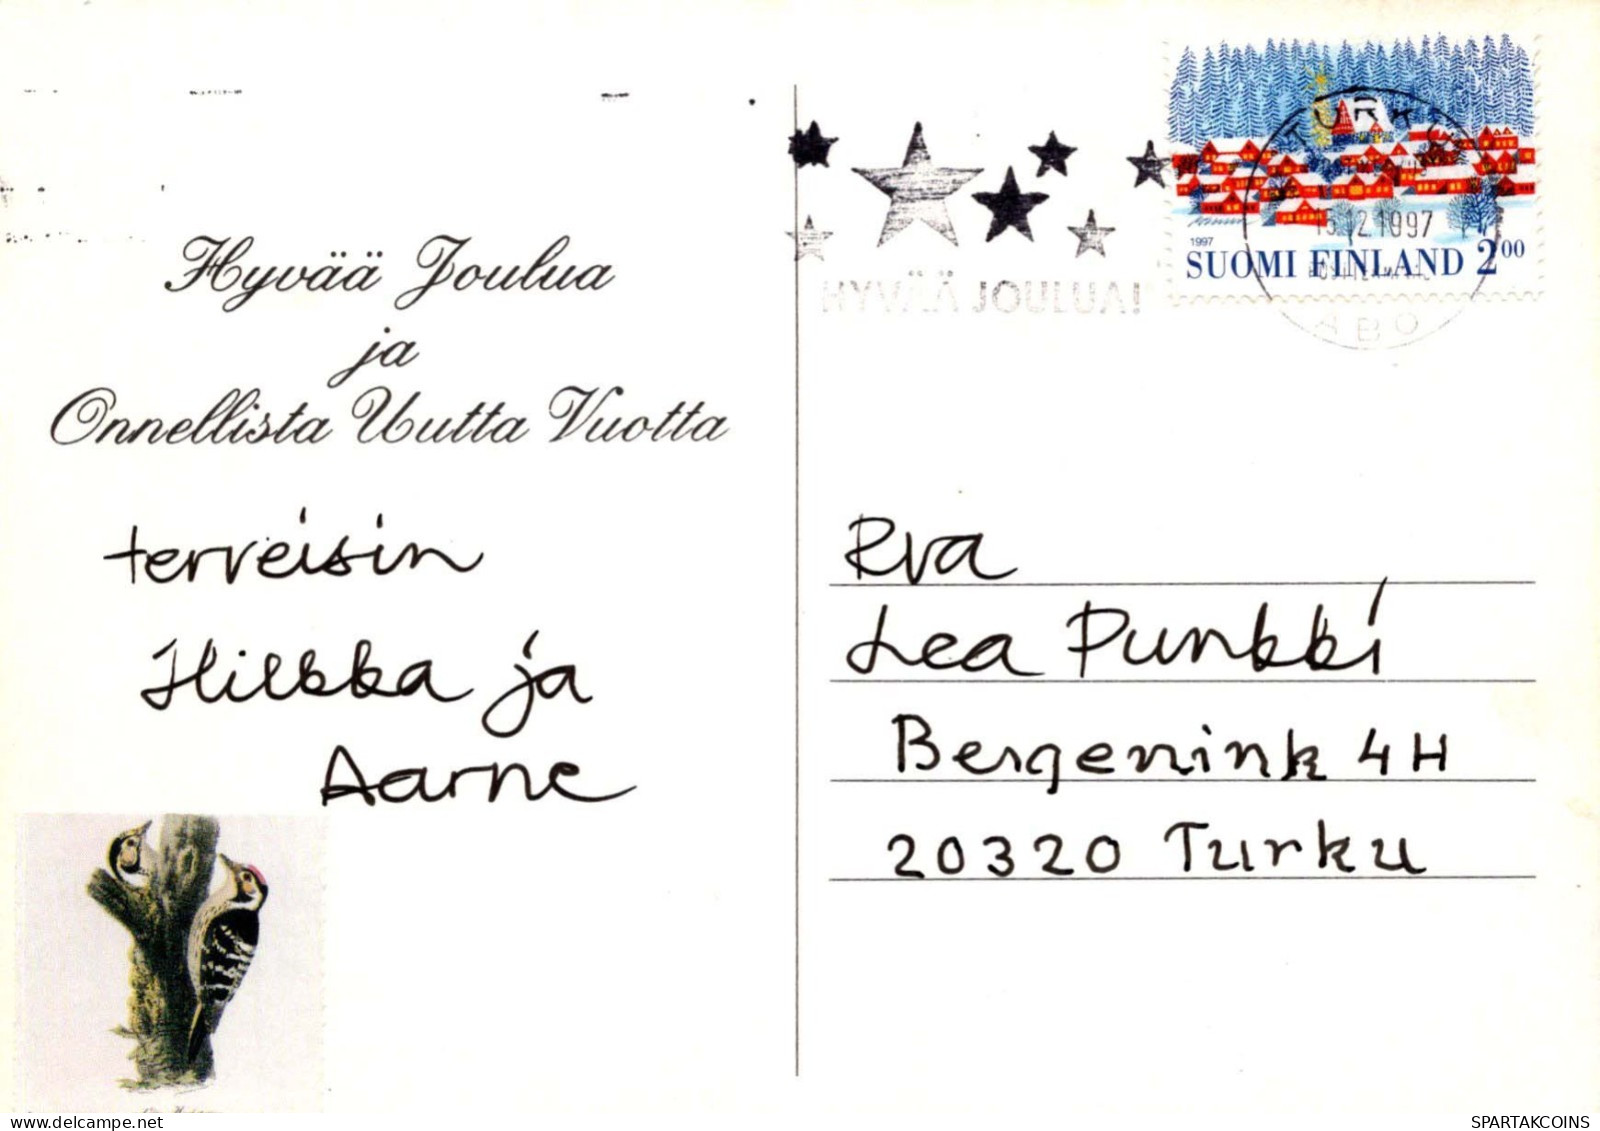 Hyvää Joulua
ja
Onnellista Uutta Vuotta
terveisin
Hilkka ja
Aarne
HYVÄÄ JOULUA!
TURKU
15.12.1997
ÅBO
1997
SUOMI FINLAND 200
Rva
Lea Punkki
Bergenink 4H
20320 Turku
SPARTAKCOINS